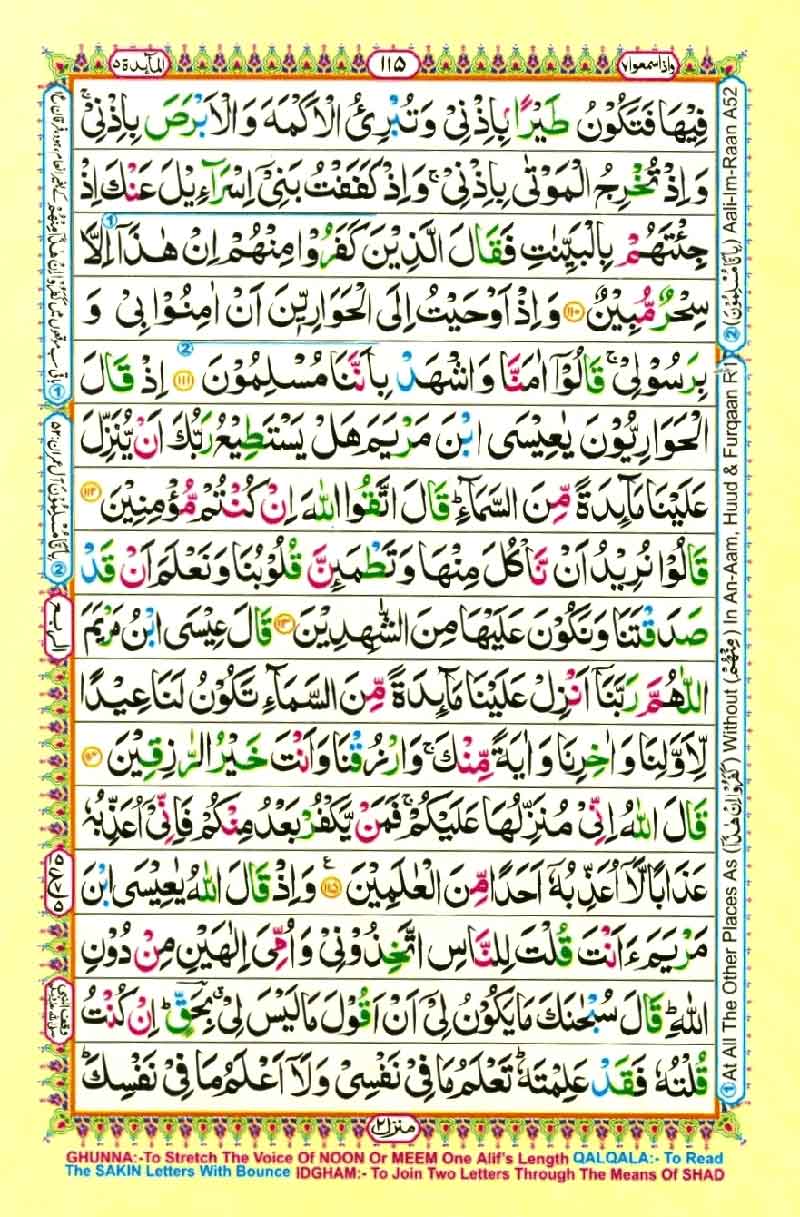 المآئدة ٥
١١٥
واذاسمعوا ٧
فِيْهَا فَتَكُوْنُ طَيْرًۢا بِاِذْنِيْ وَتُبْرِئُ الْاَكْمَهَ وَالْاَبْرَصَ بِاِذْنِيْ ۚ
وَاِذْ تُخْرِجُ الْمَوْتٰى بِاِذْنِيْ ۚ وَاِذْ كَفَفْتُ بَنِيْۤ اِسْرَآءِيْلَ عَنْكَ اِذْ
جِئْتَهُمْ بِالْبَيِّنٰتِ فَقَالَ الَّذِيْنَ كَفَرُوْا مِنْهُمْ اِنْ هٰذَاۤ اِلَّا
سِحْرٌ مُّبِيْنٌ ١١٠ وَاِذْ اَوْحَيْتُ اِلَى الْحَوَارِيّٖنَ اَنْ اٰمِنُوْا بِيْ وَ
بِرَسُوْلِيْ ۚ قَالُوْۤا اٰمَنَّا وَاشْهَدْ بِاَنَّنَا مُسْلِمُوْنَ ١١١ اِذْ قَالَ
الْحَوَارِيُّوْنَ يٰعِيْسَى ابْنَ مَرْيَمَ هَلْ يَسْتَطِيْعُ رَبُّكَ اَنْ يُّنَزِّلَ
عَلَيْنَا مَآئِدَةً مِّنَ السَّمَآءِ ؕ قَالَ اتَّقُوا اللّٰهَ اِنْ كُنْتُمْ مُّؤْمِنِيْنَ ١١٢
قَالُوْا نُرِيْدُ اَنْ نَّاْكُلَ مِنْهَا وَتَطْمَئِنَّ قُلُوْبُنَا وَنَعْلَمَ اَنْ قَدْ
صَدَقْتَنَا وَنَكُوْنَ عَلَيْهَا مِنَ الشّٰهِدِيْنَ ١١٣ قَالَ عِيْسَى ابْنُ مَرْيَمَ
اللّٰهُمَّ رَبَّنَاۤ اَنْزِلْ عَلَيْنَا مَآئِدَةً مِّنَ السَّمَآءِ تَكُوْنُ لَنَا عِيْدًا
لِّاَوَّلِنَا وَاٰخِرِنَا وَاٰيَةً مِّنْكَ ۚ وَارْزُقْنَا وَاَنْتَ خَيْرُ الرّٰزِقِيْنَ ١١٤
قَالَ اللّٰهُ اِنِّيْ مُنَزِّلُهَا عَلَيْكُمْ ۚ فَمَنْ يَّكْفُرْ بَعْدُ مِنْكُمْ فَاِنِّيْۤ اُعَذِّبُهٗ
عَذَابًا لَّاۤ اُعَذِّبُهٗۤ اَحَدًا مِّنَ الْعٰلَمِيْنَ ١١٥ وَاِذْ قَالَ اللّٰهُ يٰعِيْسَى ابْنَ
مَرْيَمَ ءَاَنْتَ قُلْتَ لِلنَّاسِ اتَّخِذُوْنِيْ وَاُمِّيَ اِلٰهَيْنِ مِنْ دُوْنِ
اللّٰهِ ؕ قَالَ سُبْحٰنَكَ مَا يَكُوْنُ لِيْۤ اَنْ اَقُوْلَ مَا لَيْسَ لِيْ ۗ بِحَقٍّ ؕ اِنْ كُنْتُ
قُلْتُهٗ فَقَدْ عَلِمْتَهٗ ؕ تَعْلَمُ مَا فِيْ نَفْسِيْ وَلَاۤ اَعْلَمُ مَا فِيْ نَفْسِكَ ؕ
① At All The Other Places As (كَفَرُوْا اِنْ هٰذَا) Without (مِنْهُمْ) In An-Aam, Huud & Furqaan R ② (بِاَنَّا مُسْلِمُوْنَ) Aali-Im-Raan A52
② بِاَنَّا مُسْلِمُوْنَ آل عمران: ٥٢
الربع
منزل ٢
GHUNNA:-To Stretch The Voice Of NOON Or MEEM One Alif's Length QALQALA:- To Read
The SAKIN Letters With Bounce IDGHAM:- To Join Two Letters Through The Means Of SHAD